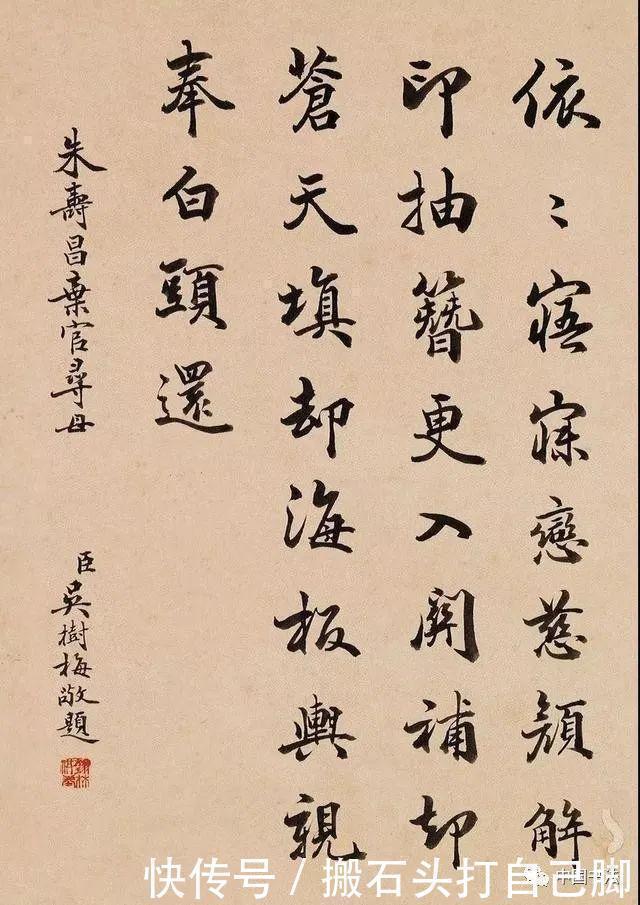 依〻寤寐戀慈顏解
印抽簪更入關補却
蒼天填却海板輿親
奉白頭還
朱壽昌棄官尋母
臣吳樹梅敬題
快传号 / 搬石头打自己脚